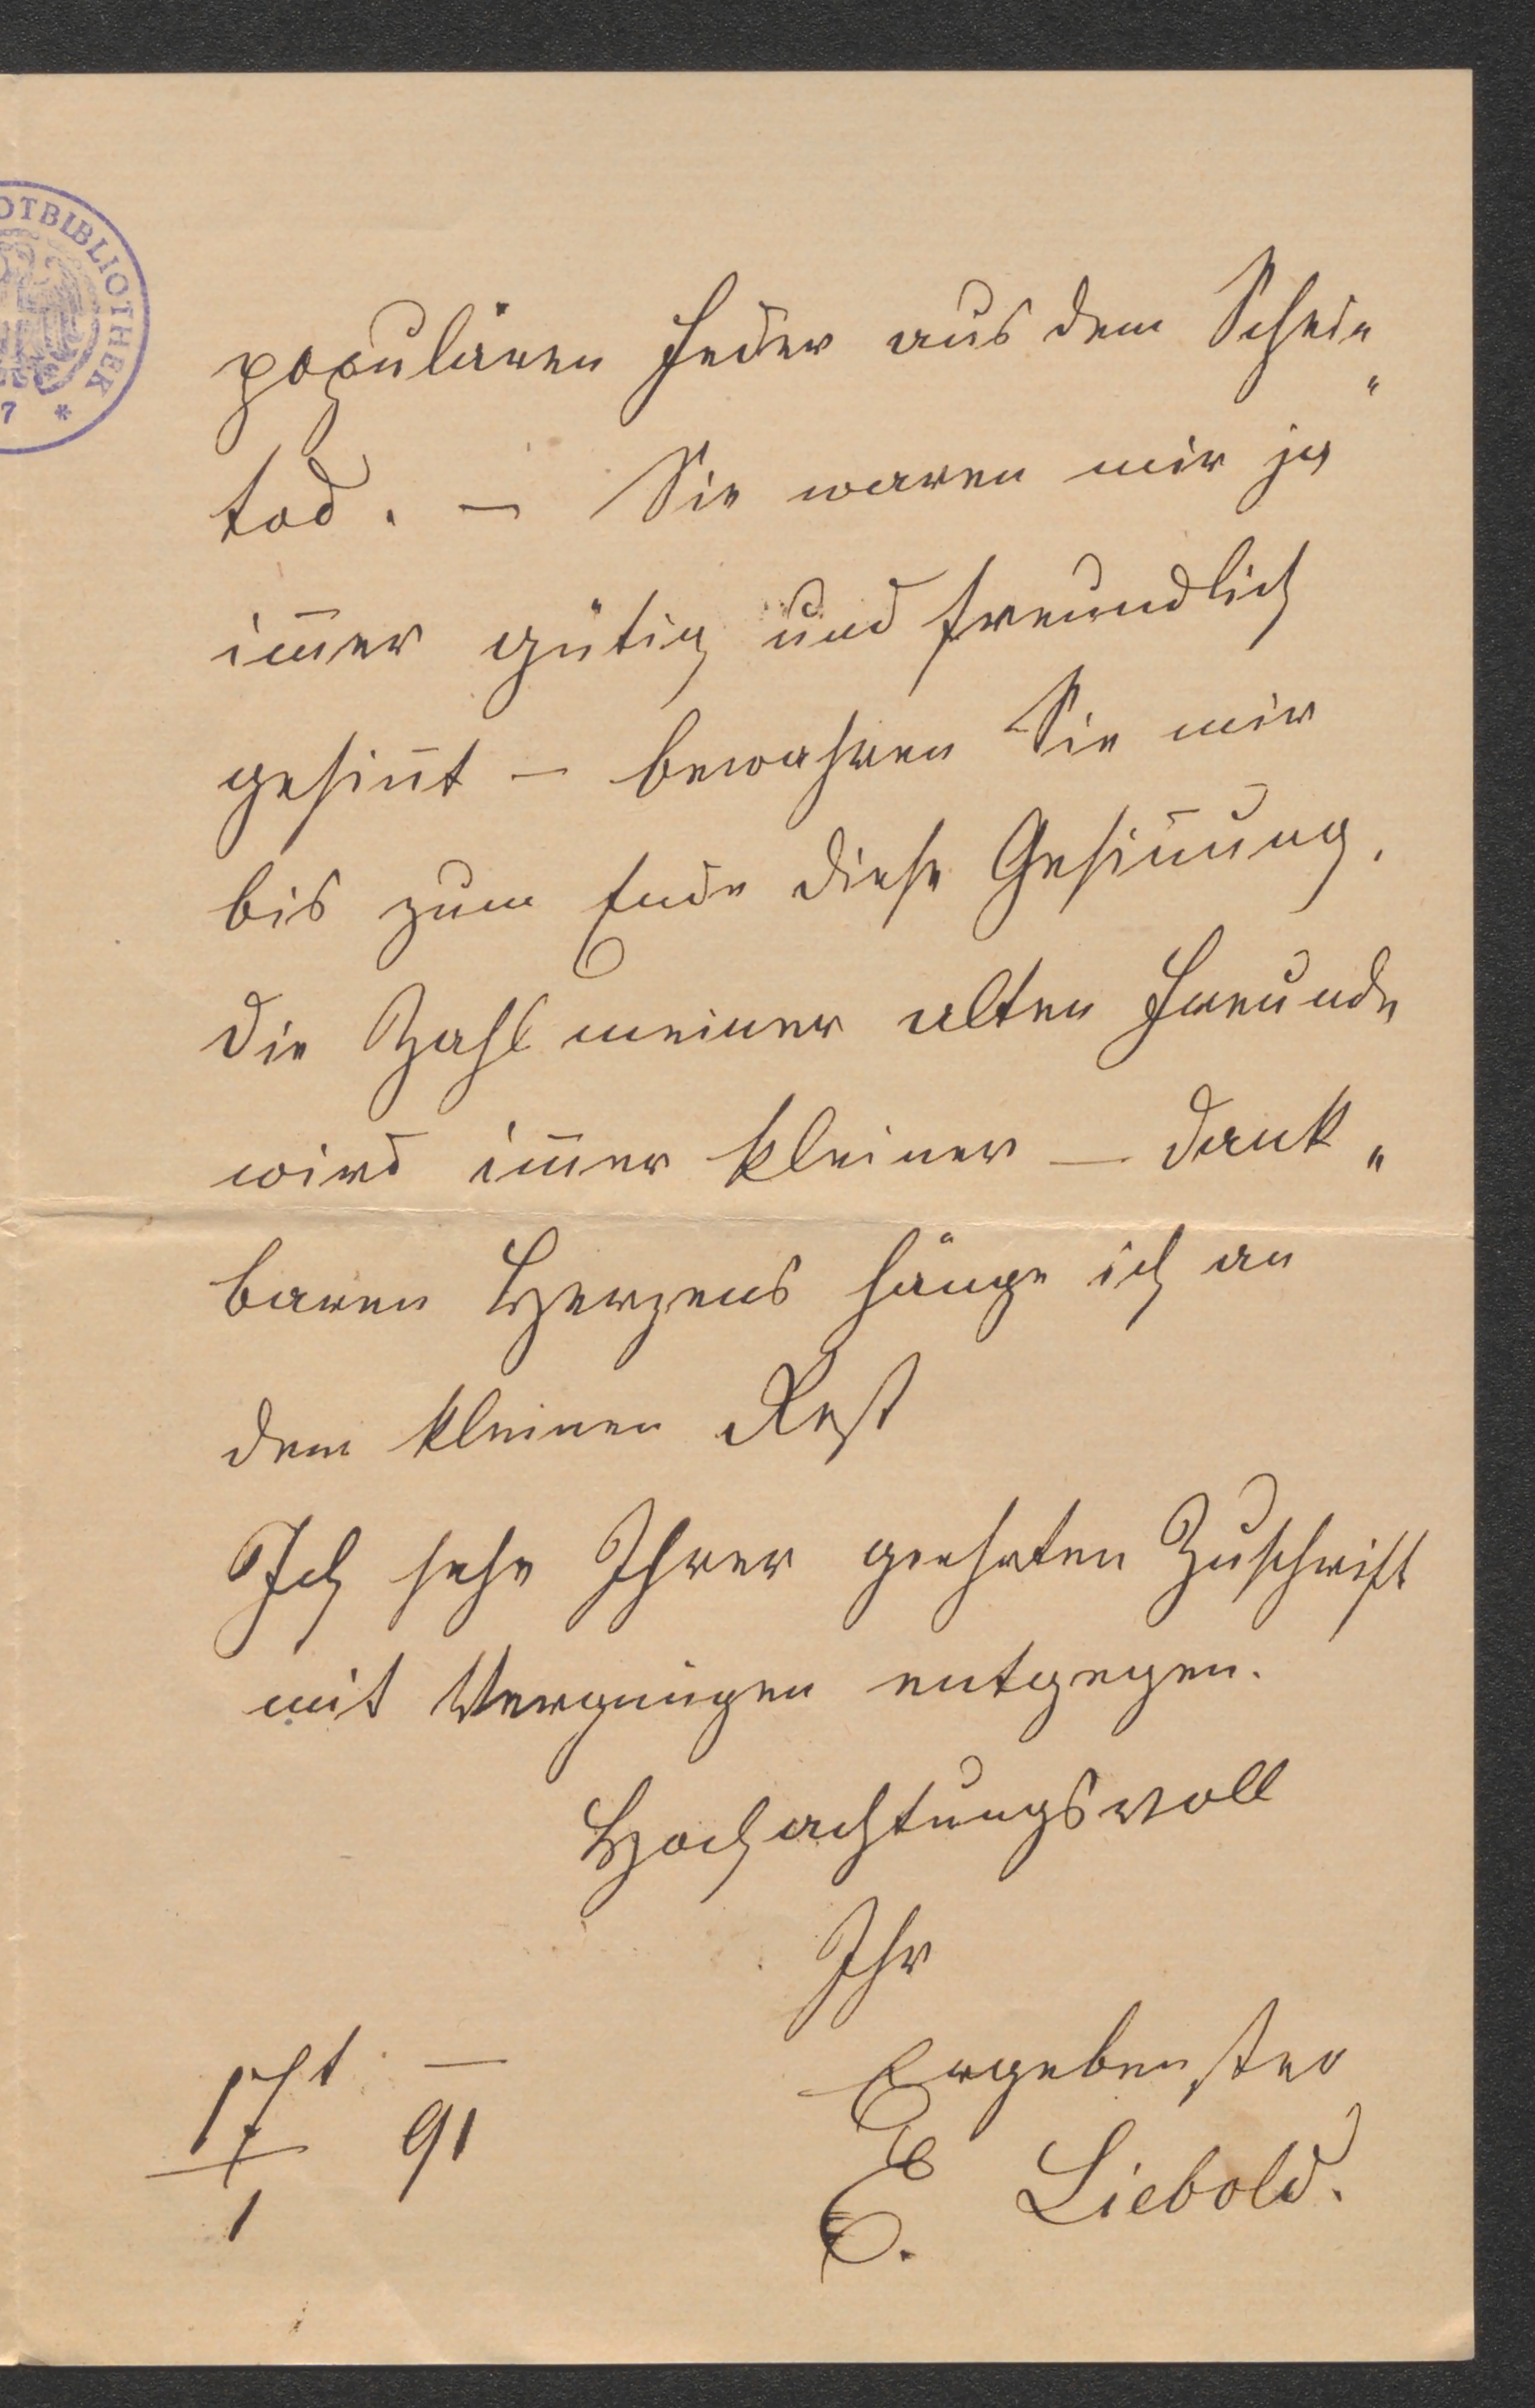 OTBIBLIOTHEK
7 *
populären Feder aus dem Schein„
tod. — Sie waren mir ja
im̄er gütig und freundlich
gesin̄t — bewahren Sie mir
bis zum Ende diese Gesin̄ung.
Die Zahl meiner alten Freunde
wird im̄er kleiner — dank„
baren Herzens hänge ich an
dem kleinen Rest
Ich sehe Ihrer geehrten Zuschrift
mit Vergnügen entgegen.
Hochachtungsvoll
Ihr
Ergebenster
E. Liebold.
17/1 91